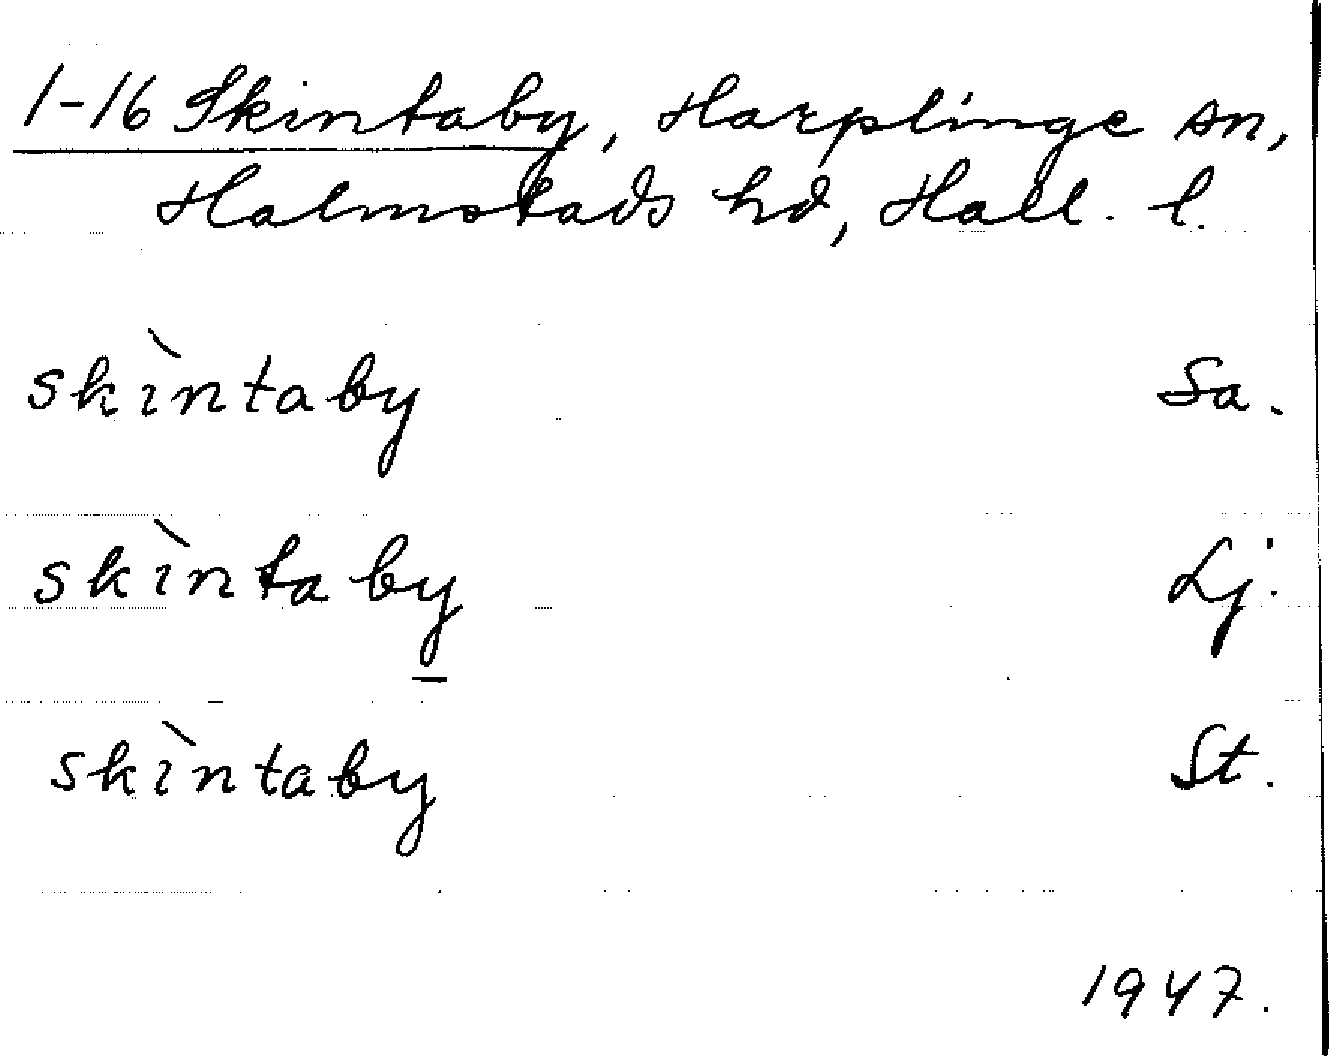 1-16 Skintaby, Harplinge sn,
Halmstads hd, Hall. l.
skìntaby Sa.
skìntaby Lj.
skìntaby St.
1947.